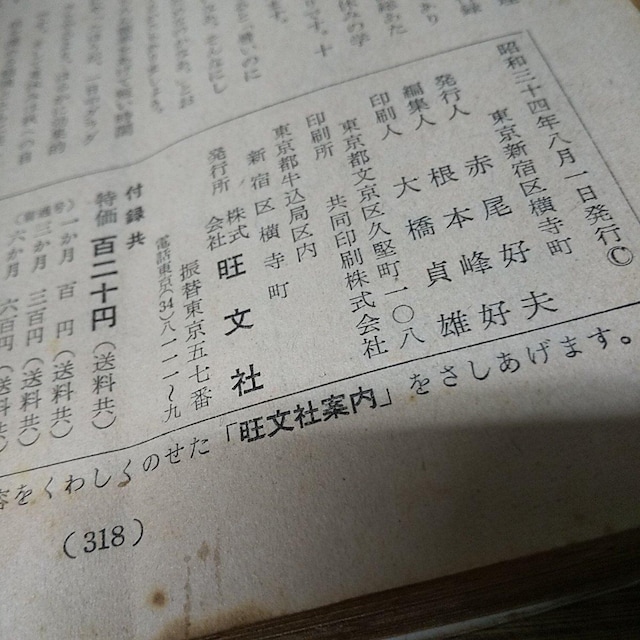 昭和三十四年八月一日発行©
東京新宿区横寺町
発行人 赤尾好夫
編集人 根本峰好
印刷人 大橋貞雄
東京都文京区久堅町一〇八
印刷所 共同印刷株式会社
東京都牛込局区内
新宿区横寺町
発行所 株式会社 旺文社
振替東京五七番
電話東京(34)八一一一〜九
付録共
特価 百二十円(送料共)
(普通号)一か月 百円(送料共)
三か月 三百円(送料共)
六か月 六百円(送料共)
をくわしくのせた「旺文社案内」をさしあげます。
(318)